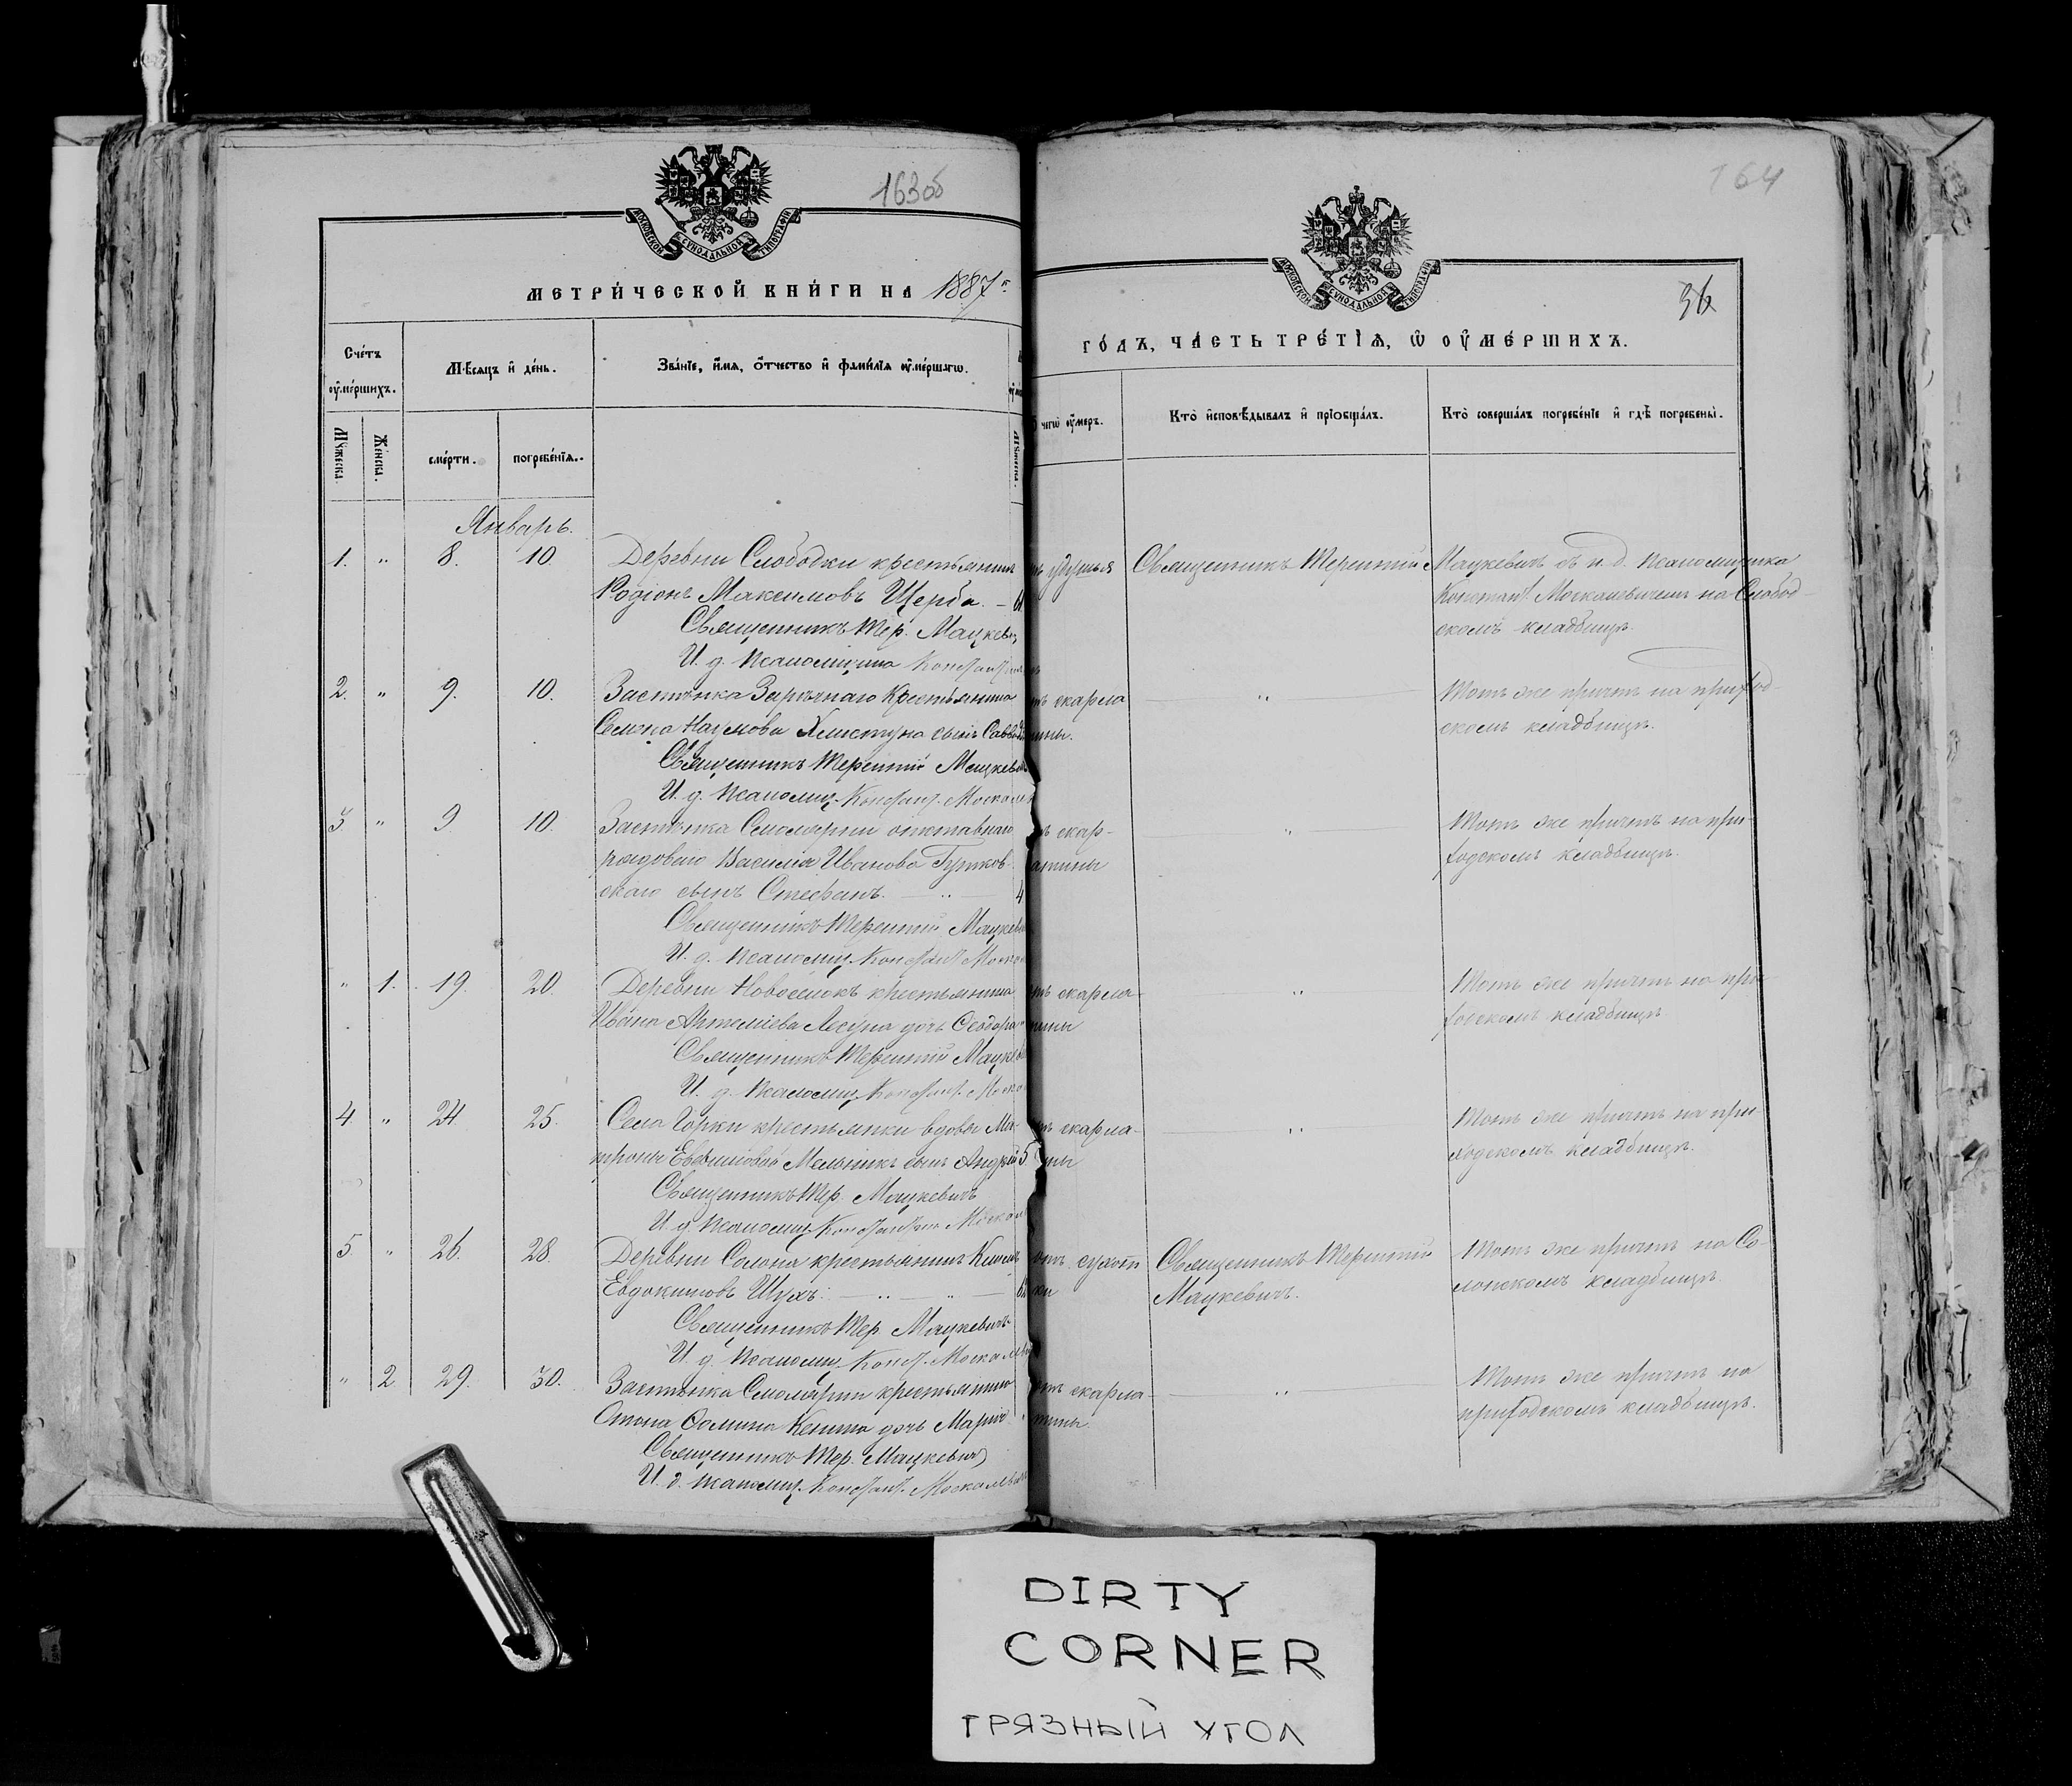 163 об
164
МОСКОВСКОЙ СѴНОДАЛЬНОЙ ТИПОГРАФІИ
МЕТРИ́ЧЕСКОЙ КНИ́ГИ НА 1887 г.
МОСКОВСКОЙ СѴНОДАЛЬНОЙ ТИПОГРАФІИ
36
ГО́ДЪ, ЧА́СТЬ ТРЕ́ТІѦ, Ѡ ОУМЕ́РШИХЪ.
Сче́тъ оумершихъ.
Мѣсяцъ и де́нь.
Зва́ніе, и́мя, о́тчество и фами́лія оуме́ршагѡ.
чегѡ оумеръ.
Кто̀ исповѣдывалъ и пріобща́лъ.
Кто̀ соверша́лъ погребе́ніе и гдѣ погребены̀.
Мужеска.
Женска.
сме́рти.
погребе́нія.
Январь.
1. " 8. 10. Деревни Слободки крестьянинъ
Родіонъ Максимовъ Щерба. —
Священникъ Тер. Мацкевич
И. д. Псаломщика Констант
удушья
Священникъ Терентій Мацкевичъ съ и. д. псаломщика
Констант. Москалевичемъ на Слобод-
скомъ кладбищѣ.
2. " 9. 10. Застѣнка Зарѣчнаго Крестьянина
Семена Наумова Хлистуна сынъ Савва
Священникъ Терентій Мацкев
И. д. Псаломщ. Констант. Москал
скарла
тины.
"
Тотъ же причтъ на приход-
скомъ кладбищѣ.
3 " 9 10. Застѣнка Смолярни отставнаго
рядоваго Василія Ивановa Гутков-
скаго сынъ Стефанъ. — " — 4
Священникъ Терентій Мацкев
И. д. Псаломщ. Констант Моска
скар-
латины
"
Тотъ же причтъ на при-
ходскомъ кладбищѣ.
" 1. 19. 20. Деревни Новосёлокъ крестьянина
Ивана Артеміева Лесуна дочь Ѳеодора
Священникъ Терентій Мацке
И. д. Псаломщ. Констант. Моска
скарла-
тины
"
Тотъ же причтъ на при-
ходскомъ кладбищѣ.
4. " 24. 25. Села Горки крестьянки вдовы Мат-
троны Евфиміовой Мельникъ сынъ Андрей 5
Священникъ Тер. Мацкевичъ
И. д. Псаломщ. Константин Москал
скарла-
тины
"
Тотъ же причтъ на при-
ходскомъ кладбищѣ.
5. " 26. 28. Деревни Солона крестьянинъ
Евдокимовъ Шухъ: — " — " —
Священникъ Тер. Мацкевичъ
И. д. Псаломщ. Конст. Москал
отъ сухот
ки
Священникъ Терентій
Мацкевичъ.
Тотъ же причтъ на Со-
лонскомъ кладбищѣ.
" 2 29. 30. Застѣнка Смолярни крестьянина
Ѳомина дочь Марія.
Священникъ Тер. Мацкевич
И. д. Псаломщ. Констант. Москалевич
отъ скарла-
тины.
"
Тотъ же причтъ на
приходскомъ кладбищѣ.
DIRTY
CORNER
ГРЯЗНЫЙ УГОЛ